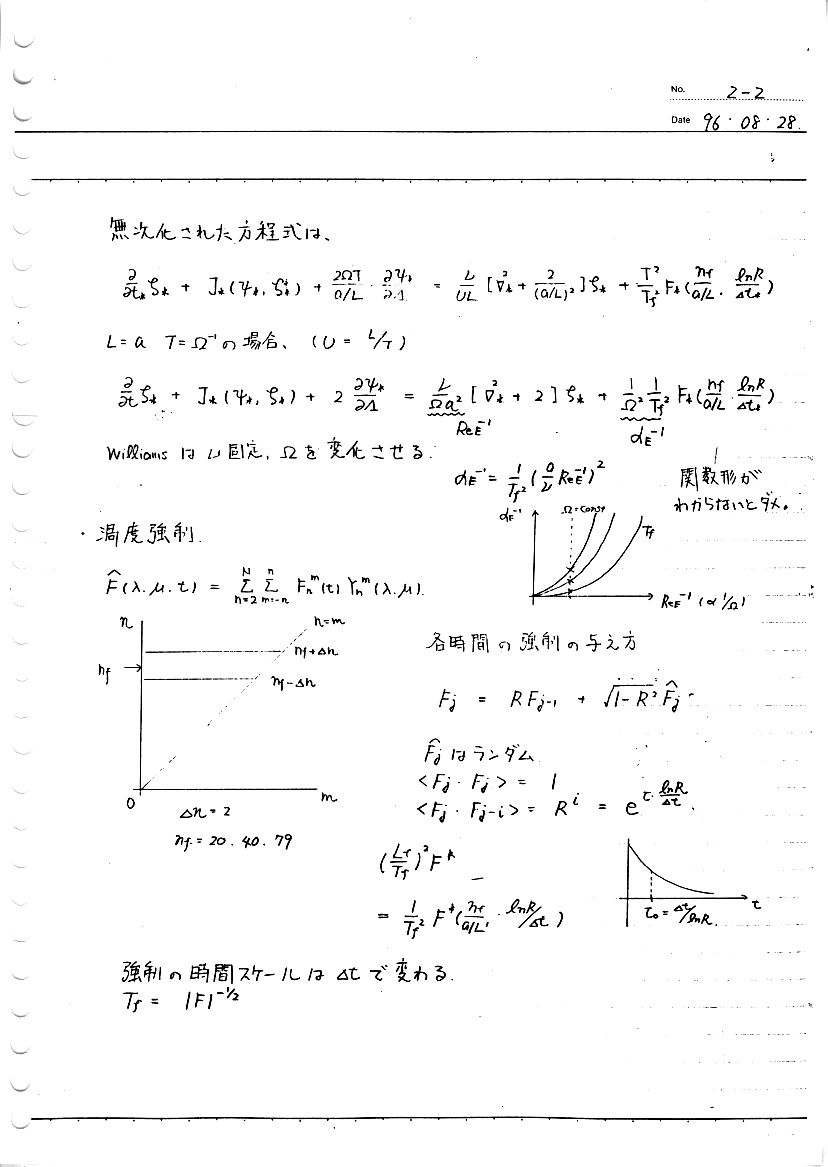 No. 2-2
Date 96・08・28.
無次化された方程式は、
∂/∂t* ζ* + J*(ψ*, ζ*) + 2ΩT/(a/L) · ∂ψ*/∂λ = ν/UL [∇*² + 2/(a/L)²] ζ* + T²/Tf² F*(nf/(a/L) · lnR/Δt*)
L = a T = Ω⁻¹ の場合、(U = L/T)
∂/∂t ζ* + J*(ψ*, ζ*) + 2 ∂ψ*/∂λ = ν/Ωa² [∇*² + 2] ζ* + 1/Ω² 1/Tf² F*(nf/(a/L) · lnR/Δt*)
ReE⁻¹ αE⁻¹
Williams は ν 固定, Ω を変化させる.
αE⁻¹ = 1/Tf² (a/ν ReE⁻¹)²
関数形が
わからないとダメ。
αE⁻¹ Ω=Const Tf
ReE⁻¹ (∝ 1/Ω)
・渦度強制.
F̂(λ.μ.t) = Σ[n=2→N] Σ[m=-n→n] Fnᵐ(t) Ynᵐ(λ.μ).
n n=m
nf+Δn
nf
nf-Δn
0 m
Δn = 2
nf = 20. 40. 79
各時間の強制の与え方
Fj = RFj-1 + √(1-R²) F̂j
F̂j はランダム
<Fj · Fj> = 1
<Fj · Fj-i> = Rⁱ = e^(τ· lnR/Δt).
(Lf/Tf)² F*
= 1/Tf² F*(nf/(a/L) · lnR/Δt)
τ₀ = Δt/lnR. t
強制の時間スケールは Δt で変わる.
Tf = |F|^(-1/2)